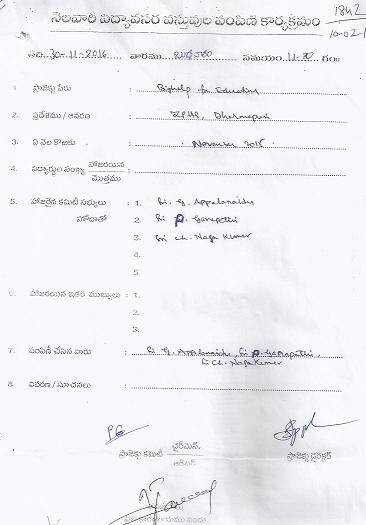 1842
10-02-1
నెలవారి విద్యావసర వస్తువుల పంపిణి కార్యక్రమం
తేది. 30-11-2016 వారము. బుధవారం సమయం. 11.30 గం॥
1. ప్రాజెక్టు పేరు : Bighelp for Education
2. ప్రదేశము / ఆవరణ : ZPHS, Dharmapuri
3. ఏ నెల కొఱకు : November 2016
4. విద్యార్థుల సంఖ్య హాజరయిన :
మొత్తము
5. హాజరైన కమిటీ సభ్యులు : 1. Sri. G. Appalanaidu
హోదాతో 2. Sri P. Ganapathi
3. Sri Ch. Naga Kumar
4.
5.
6. హాజరయిన ఇతర ముఖ్యులు : 1.
2.
3.
7. పంపిణీ చేసిన వారు : Sri G. Appalanaidu, Sri P. Ganapathi,
Sri Ch. Naga Kumar
8. వివరణ / సూచనలు :
ప్రాజెక్టు కమిటీ చైర్‌మెన్ ప్రాజెక్టు డైరెక్టర్
ఆడిటర్